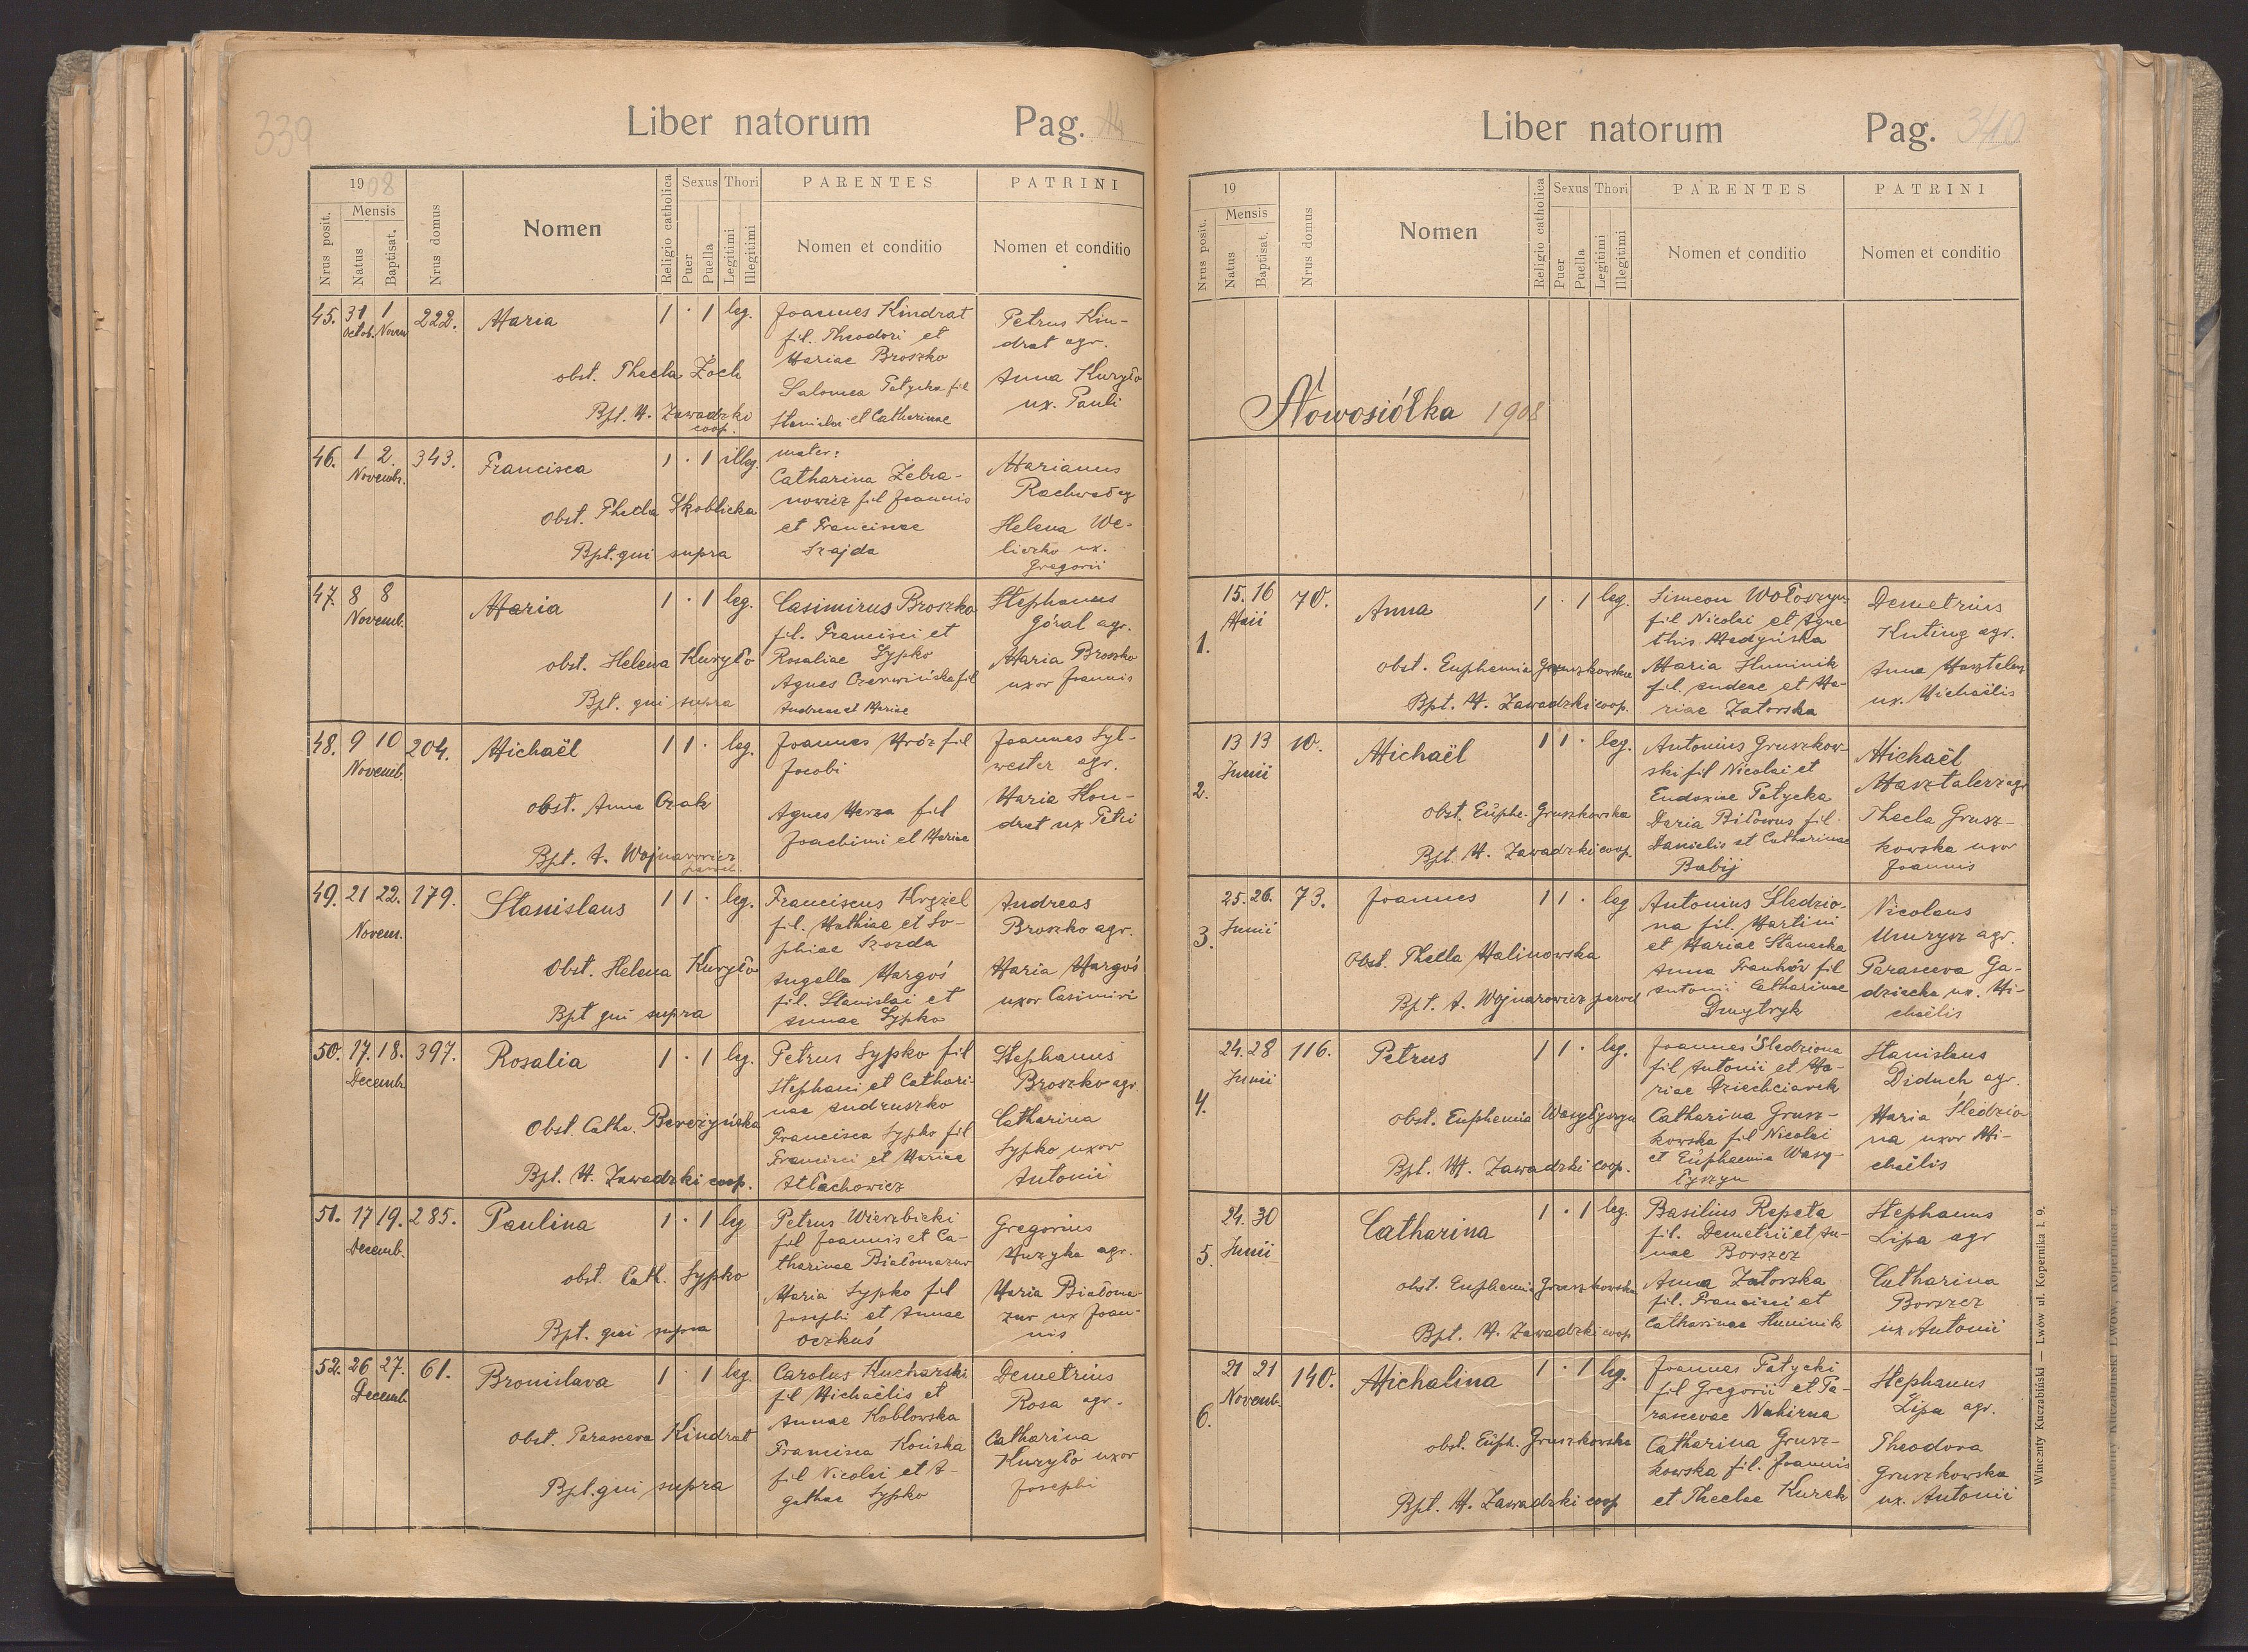 339
Liber natorum Pag.
1908
Mensis
Nrus posit.
Natus
Baptisat.
Nrus domus
Nomen
Religio catholica
Sexus
Puer
Puella
Thori
Legitimi
Illegitimi
PARENTES
Nomen et conditio
PATRINI
Nomen et conditio
45. 31 Octob. 1 Novem 222. Maria 1 · 1 leg.
obst. Thecla Żoch
Bpt. M. Zawadzki
coop.
Joannes Kindrat
fil. Theodori et
Mariae Broszko
Salomea Patycka fil
Stanislai et Catharinae
Petrus Kin-
drat agr.
Anna Kuryło
ux. Pauli
46. 1 2. Novembr. 343. Francisca 1 · 1 illeg.
Obst. Thecla Skoblicka
Bpt. qui supra
mater:
Catharina Żebra-
nowicz fil Joannis
et Franciscae
Szajda
Marianus
Helena We-
liczko ux.
Gregorii
47. 8 8 Novemb. Maria 1 · 1 leg.
obst. Helena Kuryło
Bpt. qui supra
Casimirus Broszko
fil. Francisci et
Rosaliae Sypko
Agnes Czerwińska fil
Andreae et Mariae
Stephanus
Góral agr.
Maria Broszko
uxor Joannis
48. 9 10 Novemb. 204. Michaël 1 1 · leg.
obst. Anna Ozak
Bpt. A. Wojnarowicz
paroch.
Joannes Mróz fil
Jacobi
Agnes fil
Joachimi et Mariae
Joannes Syl-
wester agr.
Maria Kon-
drat ux Petri
49. 21 22. Novem. 179. Stanislaus 1 1 · leg.
Obst. Helena Kuryło
Bpt qui supra
Franciscus
fil. Mathiae et So-
phiae Szozda
Angella Margoś
fil. Stanislai et
Annae Sypko
Andreas
Broszko agr.
Maria Margoś
uxor Casimiri
50. 17. 18. Decemb. 397. Rosalia 1 · 1 leg.
Obst. Cathe. Bereżyńska
Bpt. M. Zawadzki coop.
Petrus Sypko fil
Stephani et Cathari-
nae Andruszko
Francisca Sypko fil
Francisci et Mariae
Atłachowicz
Stephanus
Broszko agr.
Catharina
Sypko uxor
Antonii
51. 17 19. Decemb. 285. Paulina 1 · 1 leg
obst. Cath. Sypko
Bpt. qui supra
Petrus Wierzbicki
fil Joannis et Ca-
tharinae Białomazur
Maria Sypko fil
Josephi et Annae
Oczkuś
Gregorius
Muzyka agr.
Maria Białoma-
zur ux Joan-
nis
52. 26 27. Decemb 61. Bronislava 1 · 1 leg.
Obst. Parasceva Kindrat
Bpt. qui supra
Carolus Kucharski
fil Michaëlis et
Annae Koblowska
Francisca Końska
fil Nicolai et A-
gathae Sypko
Demetrius
Rosa agr.
Catharina
Kuryło uxor
Josephi
Liber natorum Pag. 340
19
Mensis
Nrus posit.
Natus
Baptisat.
Nrus domus
Nomen
Religio catholica
Sexus
Puer
Puella
Thori
Legitimi
Illegitimi
PARENTES
Nomen et conditio
PATRINI
Nomen et conditio
Nowosiółka 1908
1. 15. 16 Maii 70. Anna 1 · 1 leg.
obst. Euphemia Gruszkowska
Bpt. M. Zawadzki coop.
Simeon Wołoszyn
fil Nicolai et Agne-
this Medyńska
Maria Huminik
fil. Andreae et Ma-
riae Zatorska
Demetrius
Kuting agr.
Anna Masztalerz
ux. Michaëlis
2. 13 13 Junii 10. Michaël 1 1 · leg.
Obst. Euphe. Gruszkowska
Bpt. M. Zawadzki coop.
Antonius Gruszkow-
ski fil Nicolai et
Eudoxiae Patycka
Daria Biłowus fil.
Danielis et Catharinae
Babij
Michaël
Masztalerz agr
Thecla Grusz-
kowska uxor
Joannis
3. 25. 26. Junii 73. Joannes 1 1 · leg
Obst. Thecla Malinowska
Bpt. A. Wojnarowicz paroch
Antonius Śledzio-
na fil. Martini
et Mariae Stanecka
Anna fil
Antonii Catharinae
Dmytryk
Nicolaus
agr.
Parasceva Ga-
dziacka ux. Mi-
chaëlis
4. 24. 28 Junii 116. Petrus 1 1 · leg.
obst. Euphemia Wasyłyszyn
Bpt. M. Zawadzki coop.
Joannes Śledziona
fil Antonii et Ma-
riae Dziechciarek
Catharina Grusz-
kowska fil Nicolai
et Euphemia Wasy-
łyszyn
Stanislaus
Diduch agr.
Maria Śledzio
na uxor Mi-
chaëlis
5. 24. 30 Junii Catharina 1 · 1 leg.
obst. Euphemia Gruszkowska
Bpt. M. Zawadzki coop
Basilius Repeta
fil. Demetrii et An-
nae Borszcz
Anna Zatorska
fil. Francisci et
Catharinae Huminik
Stephanus
Lipa agr
Catharina
Borszcz
ux Antonii
6. 21 21 Novemb. 140. Michalina 1 · 1 leg.
obst. Euph. Gruszkowska
Bpt. M. Zawadzki coop
Joannes Patycki
fil Gregorii et Pa-
rascevae Nahirna
Catharina Grusz-
kowska fil. Joannis
et Theclae Kurek
Stephanus
Lipa agr.
Theodora
Gruszkowska
ux. Antonii
Winczenty Kuczabiński — Lwów ul. Kopernika l. 9.